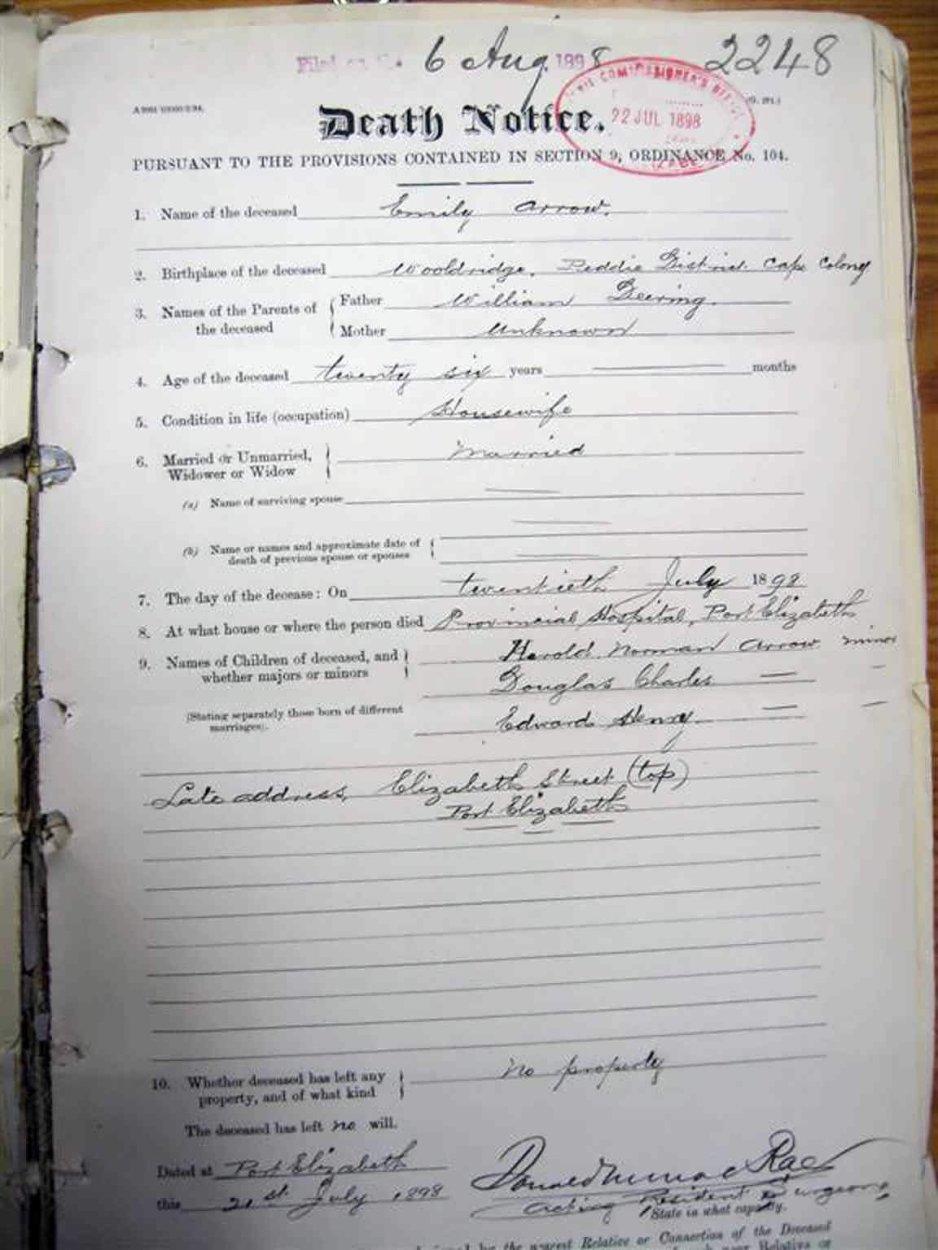 Filed 6 Aug. 1898 2248
COMMISSIONER'S OFFICE
22 JUL 1898
Death Notice.
PURSUANT TO THE PROVISIONS CONTAINED IN SECTION 9, ORDINANCE No. 104.
1. Name of the deceased Emily Arrow.
2. Birthplace of the deceased Wooldridge, Peddie District Cape Colony
3. Names of the Parents of the deceased { Father William Deering.
Mother Unknown
4. Age of the deceased twenty six years — months
5. Condition in life (occupation) Housewife
6. Married or Unmarried, Widower or Widow } Married
(a) Name of surviving spouse —
(b) Name or names and approximate date of death of previous spouse or spouses { —
7. The day of the decease: On twentieth July 1898
8. At what house or where the person died Provincial Hospital, Port Elizabeth
9. Names of Children of deceased, and whether majors or minors } Harold Norman Arrow minor
Douglas Charles — —
(Stating separately those born of different marriages). Edward Henry — —
Late address, Elizabeth Street (top)
Port Elizabeth
10. Whether deceased has left any property, and of what kind } No property
The deceased has left no will.
Dated at Port Elizabeth
this 21st July 1898
Rae
Acting Resident Surgeon,
State in what capacity.
by the nearest Relative or Connection of the Deceased
Relative or